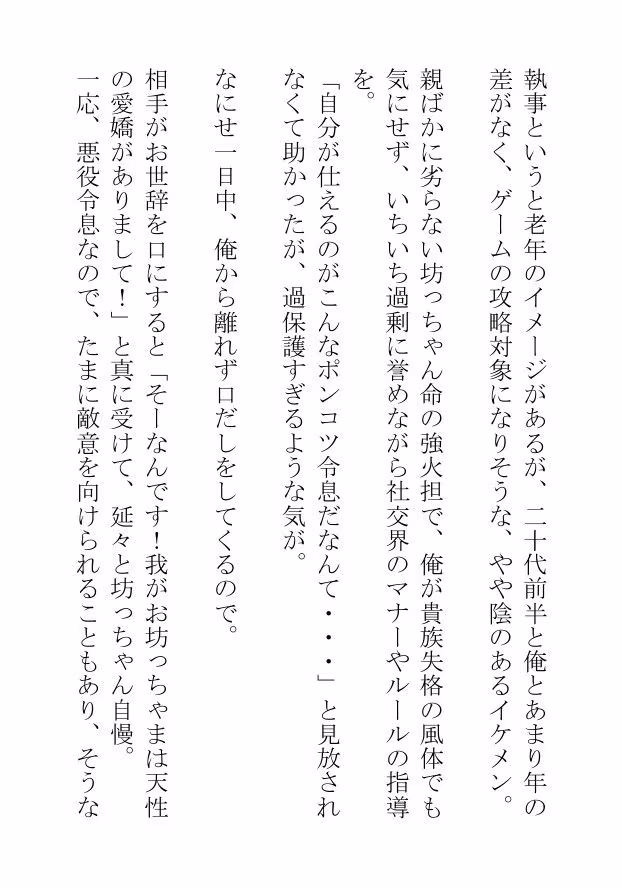 執事というと老年のイメージがあるが、二十代前半と俺とあまり年の
差がなく、ゲームの攻略対象になりそうな、やや陰のあるイケメン。
親ばかに劣らない坊っちゃん命の強火担で、俺が貴族失格の風体でも
気にせず、いちいち過剰に誉めながら社交界のマナーやルールの指導
を。
「自分が仕えるのがこんなポンコツ令息だなんて・・・」と見放され
なくて助かったが、過保護すぎるような気が。
なにせ一日中、俺から離れず口だしをしてくるので。
相手がお世辞を口にすると「そーなんです！我がお坊っちゃまは天性
の愛嬌がありまして！」と真に受けて、延々と坊っちゃん自慢。
一応、悪役令息なので、たまに敵意を向けられることもあり、そうな